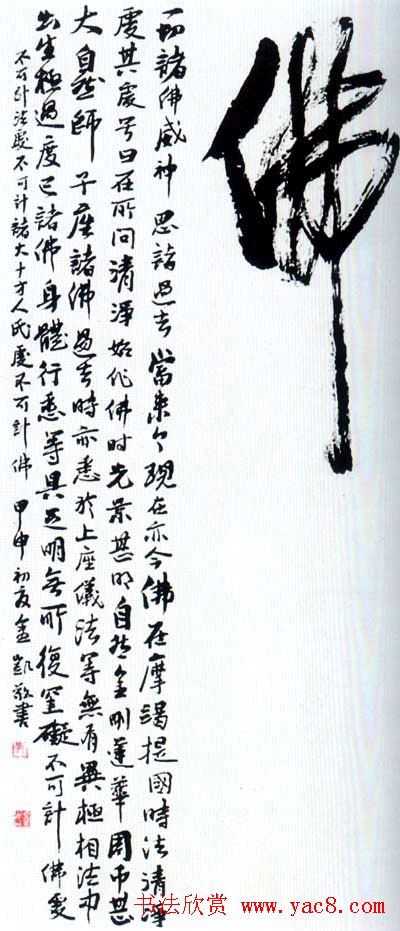 佛
一切諸佛威神恩諸過去當来今現在亦今佛在摩竭提國時法清淨
處其處号曰在所問清渾始作佛時光景甚明自然金剛蓮華周帀甚
大自然師子座諸佛過去時亦悉於上座儀法等無有異極相法中
出生極過度已諸佛身體行悉等具足明無所復罣礙不可計佛處
不可計法處不可計諸大十方人民處不可計佛 甲申初夏金凱敬書
书法欣赏 www.yac8.com